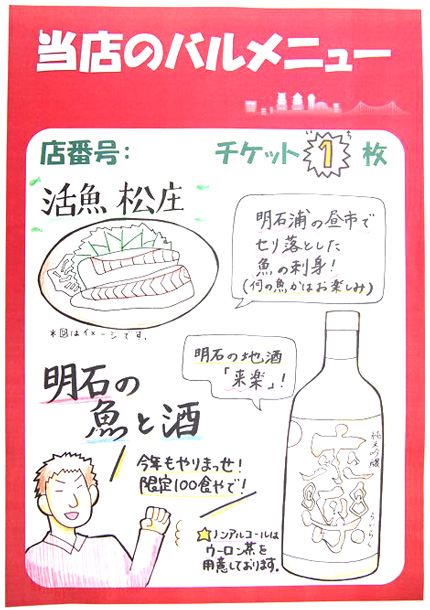 当店のバルメニュー
店番号:
チケット1枚
いち
活魚 松庄
明石浦の昼市で
せり落とした
魚の刺身!
(何の魚かはお楽しみ)
※図はイメージです。
明石の地酒
「来楽」!
明石の
魚と酒
今年もやりまっせ!
限定100食やで!
☆ノンアルコールは
ウーロン茶を
用意しております。
純米吟醸
来楽
らいらく